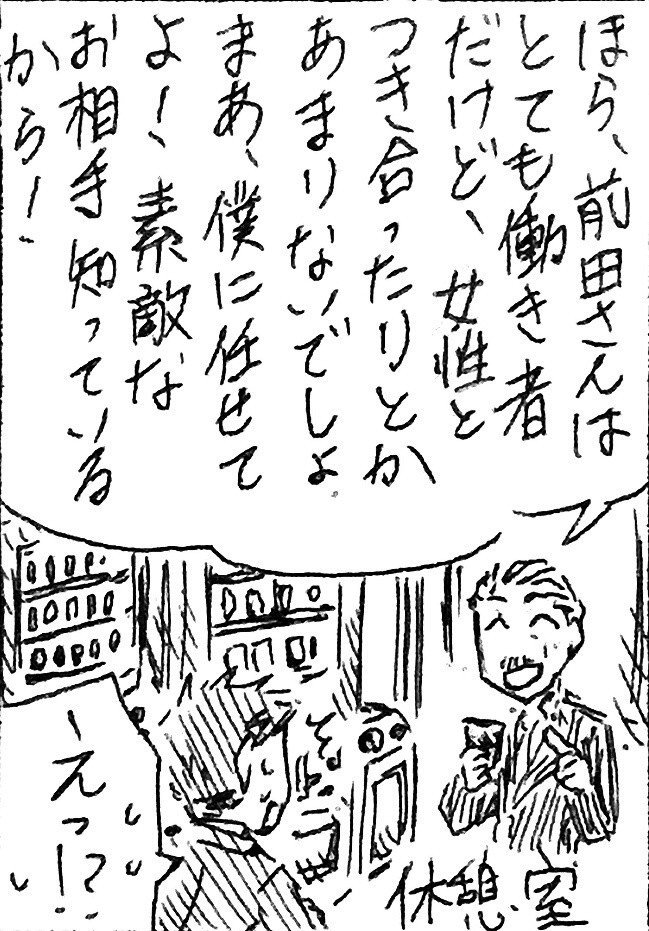 ほら、前田さんは
とても働き者
だけど、女性と
つき合ったりとか
あまりないでしょ
まあ、僕に任せて
よ！素敵な
お相手知っている
から！
ーえっ！？
休憩室